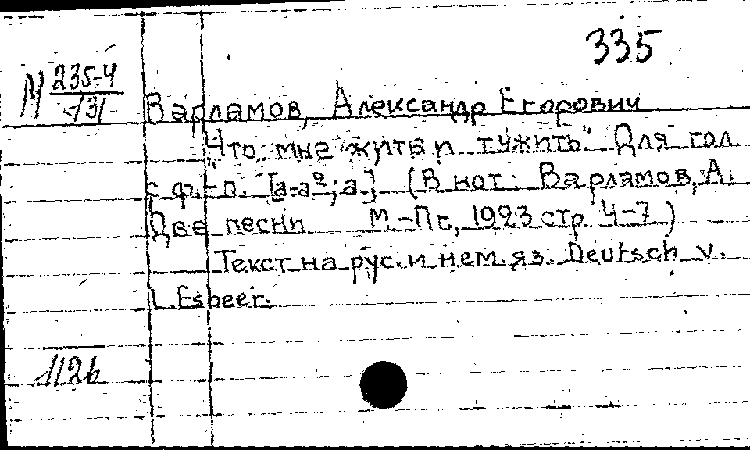 335
М 235-4
131
Варламов, Александр Егорович
"Что мне жить и тужить" Для гол.
с ф.-п. [а-а²; а.] (В нот: Варламов, А.
Две песни М.-Пг, 1923 стр. 4-7)
Текст на рус. и нем. яз. Deutsch v.
L. Esbeer.
1126